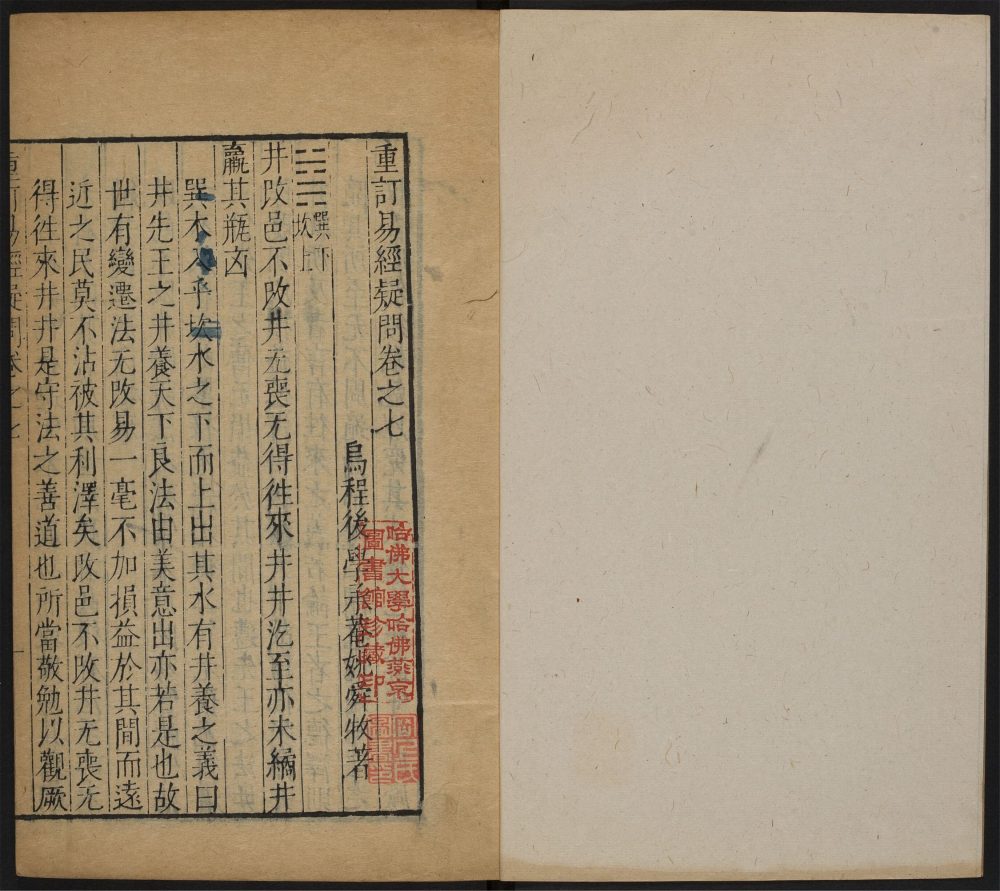 重訂易經疑問卷之七
烏程後學承菴姚舜牧著
䷯巽下
坎上
井改邑不改井无喪无得徃來井井汔至亦未繘井
羸其瓶凶
巽木入乎坎水之下而上出其水有井養之義曰
井先王之井養天下良法由美意出亦若是也故
世有變遷法无改易一毫不加損益於其間而遠
近之民莫不沾被其利澤矣改邑不改井无喪无
得徃來井井是守法之善道也所當敬勉以觀厥
重訂易經疑問卷之七
哈佛大學哈佛燕京
圖書館珍藏印